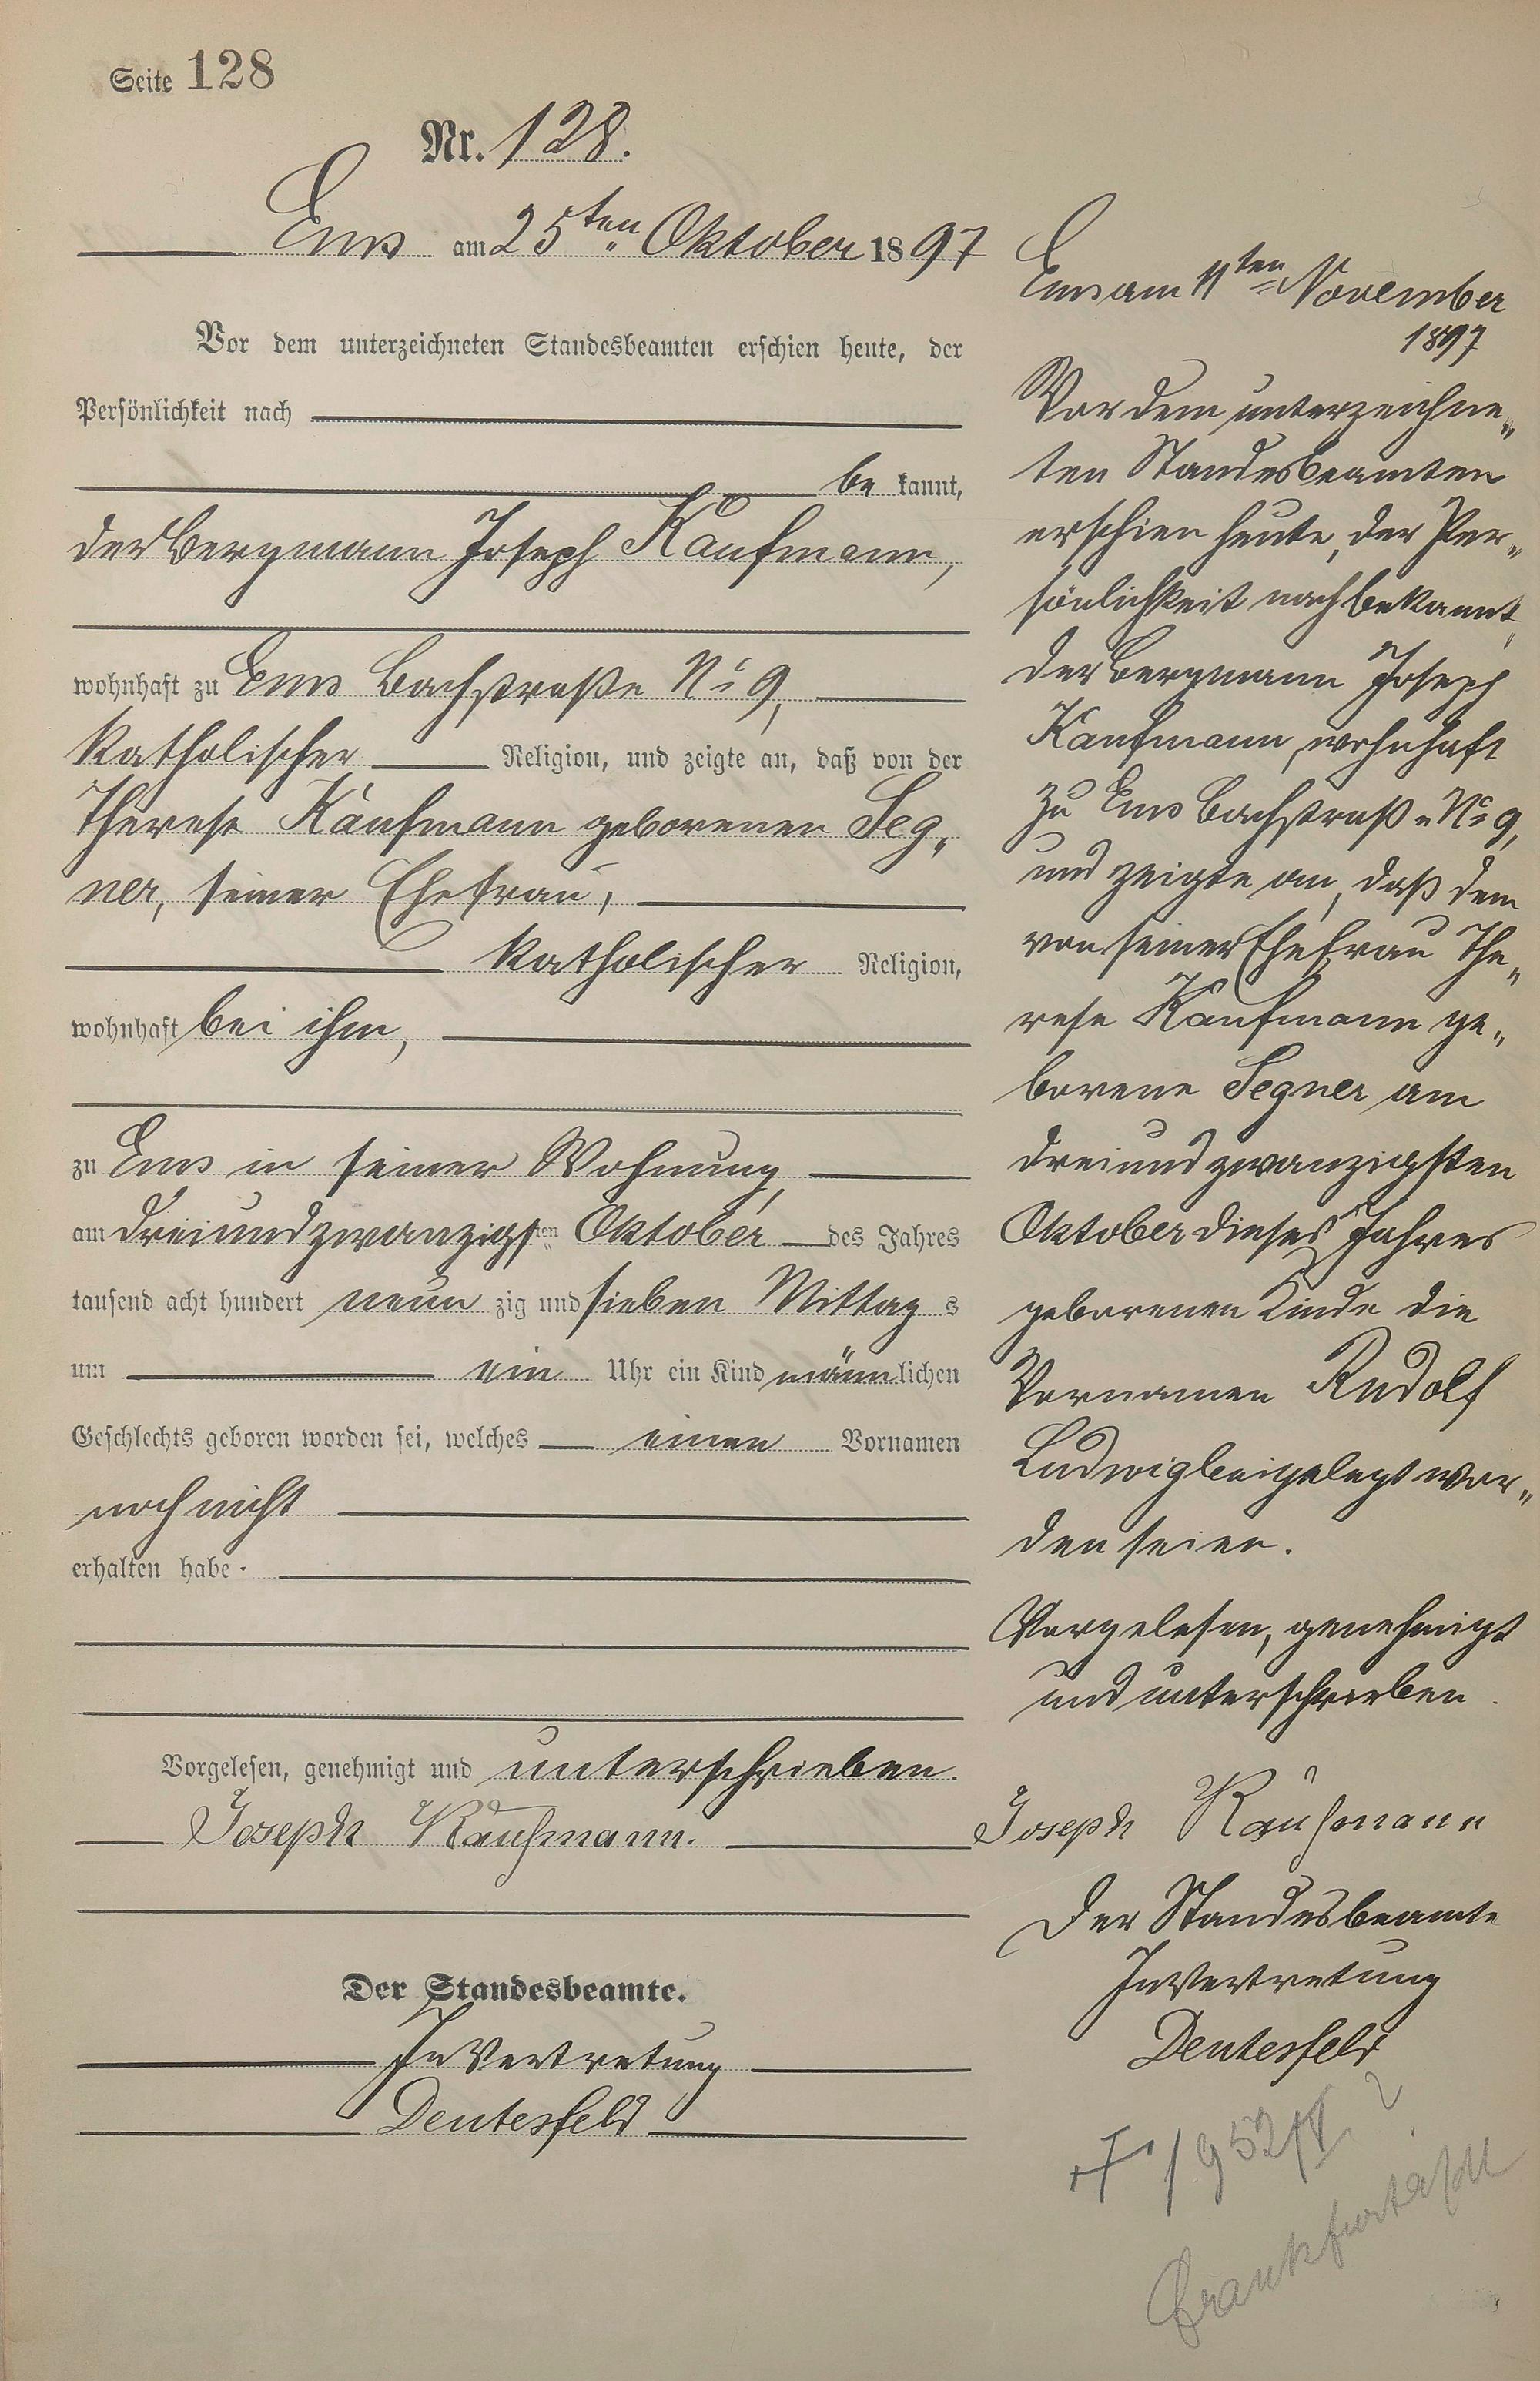 Seite 128
Nr. 128.
Ems am 25ten Oktober 1897
Vor dem unterzeichneten Standesbeamten erschien heute, der
Persönlichkeit nach
be kannt,
der Bergmann Joseph Kaufmann,
wohnhaft zu Ems Bachstraße No 9,
katholischer Religion, und zeigte an, daß von der
Therese Kaufmann geborenen Seg„
ner, seiner Ehefrau,
katholischer Religion,
wohnhaft bei ihm,
zu Ems in seiner Wohnung,
am dreiundzwanzigsten Oktober des Jahres
tausend acht hundert neun zig und sieben Mittag s
um ein Uhr ein Kind männlichen
Geschlechts geboren worden sei, welches einen Vornamen
noch nicht
erhalten habe.
Vorgelesen, genehmigt und unterschrieben.
Joseph Kaufmann.
Der Standesbeamte.
In Vertretung
Deutesfeld
Ems am 11ten November
1897
Vor dem unterzeichne„
ten Standesbeamten
erschien heute, der Per„
sönlichkeit nach bekannt,
der Bergmann Joseph
Kaufmann, wohnhaft
zu Ems Bachstraße No 9,
und zeigte an, daß dem
von seiner Ehefrau The„
rese Kaufmann ge„
borene Segner am
dreiundzwanzigsten
Oktober dieses Jahres
geborenen Kinde die
Vornamen Rudolf
Ludwig beigelegt wor„
den seien.
Vorgelesen, genehmigt
und unterschrieben.
Joseph Kaufmann
Der Standesbeamte
In Vertretung
Deutesfeld
1952
Frankfurt a/M